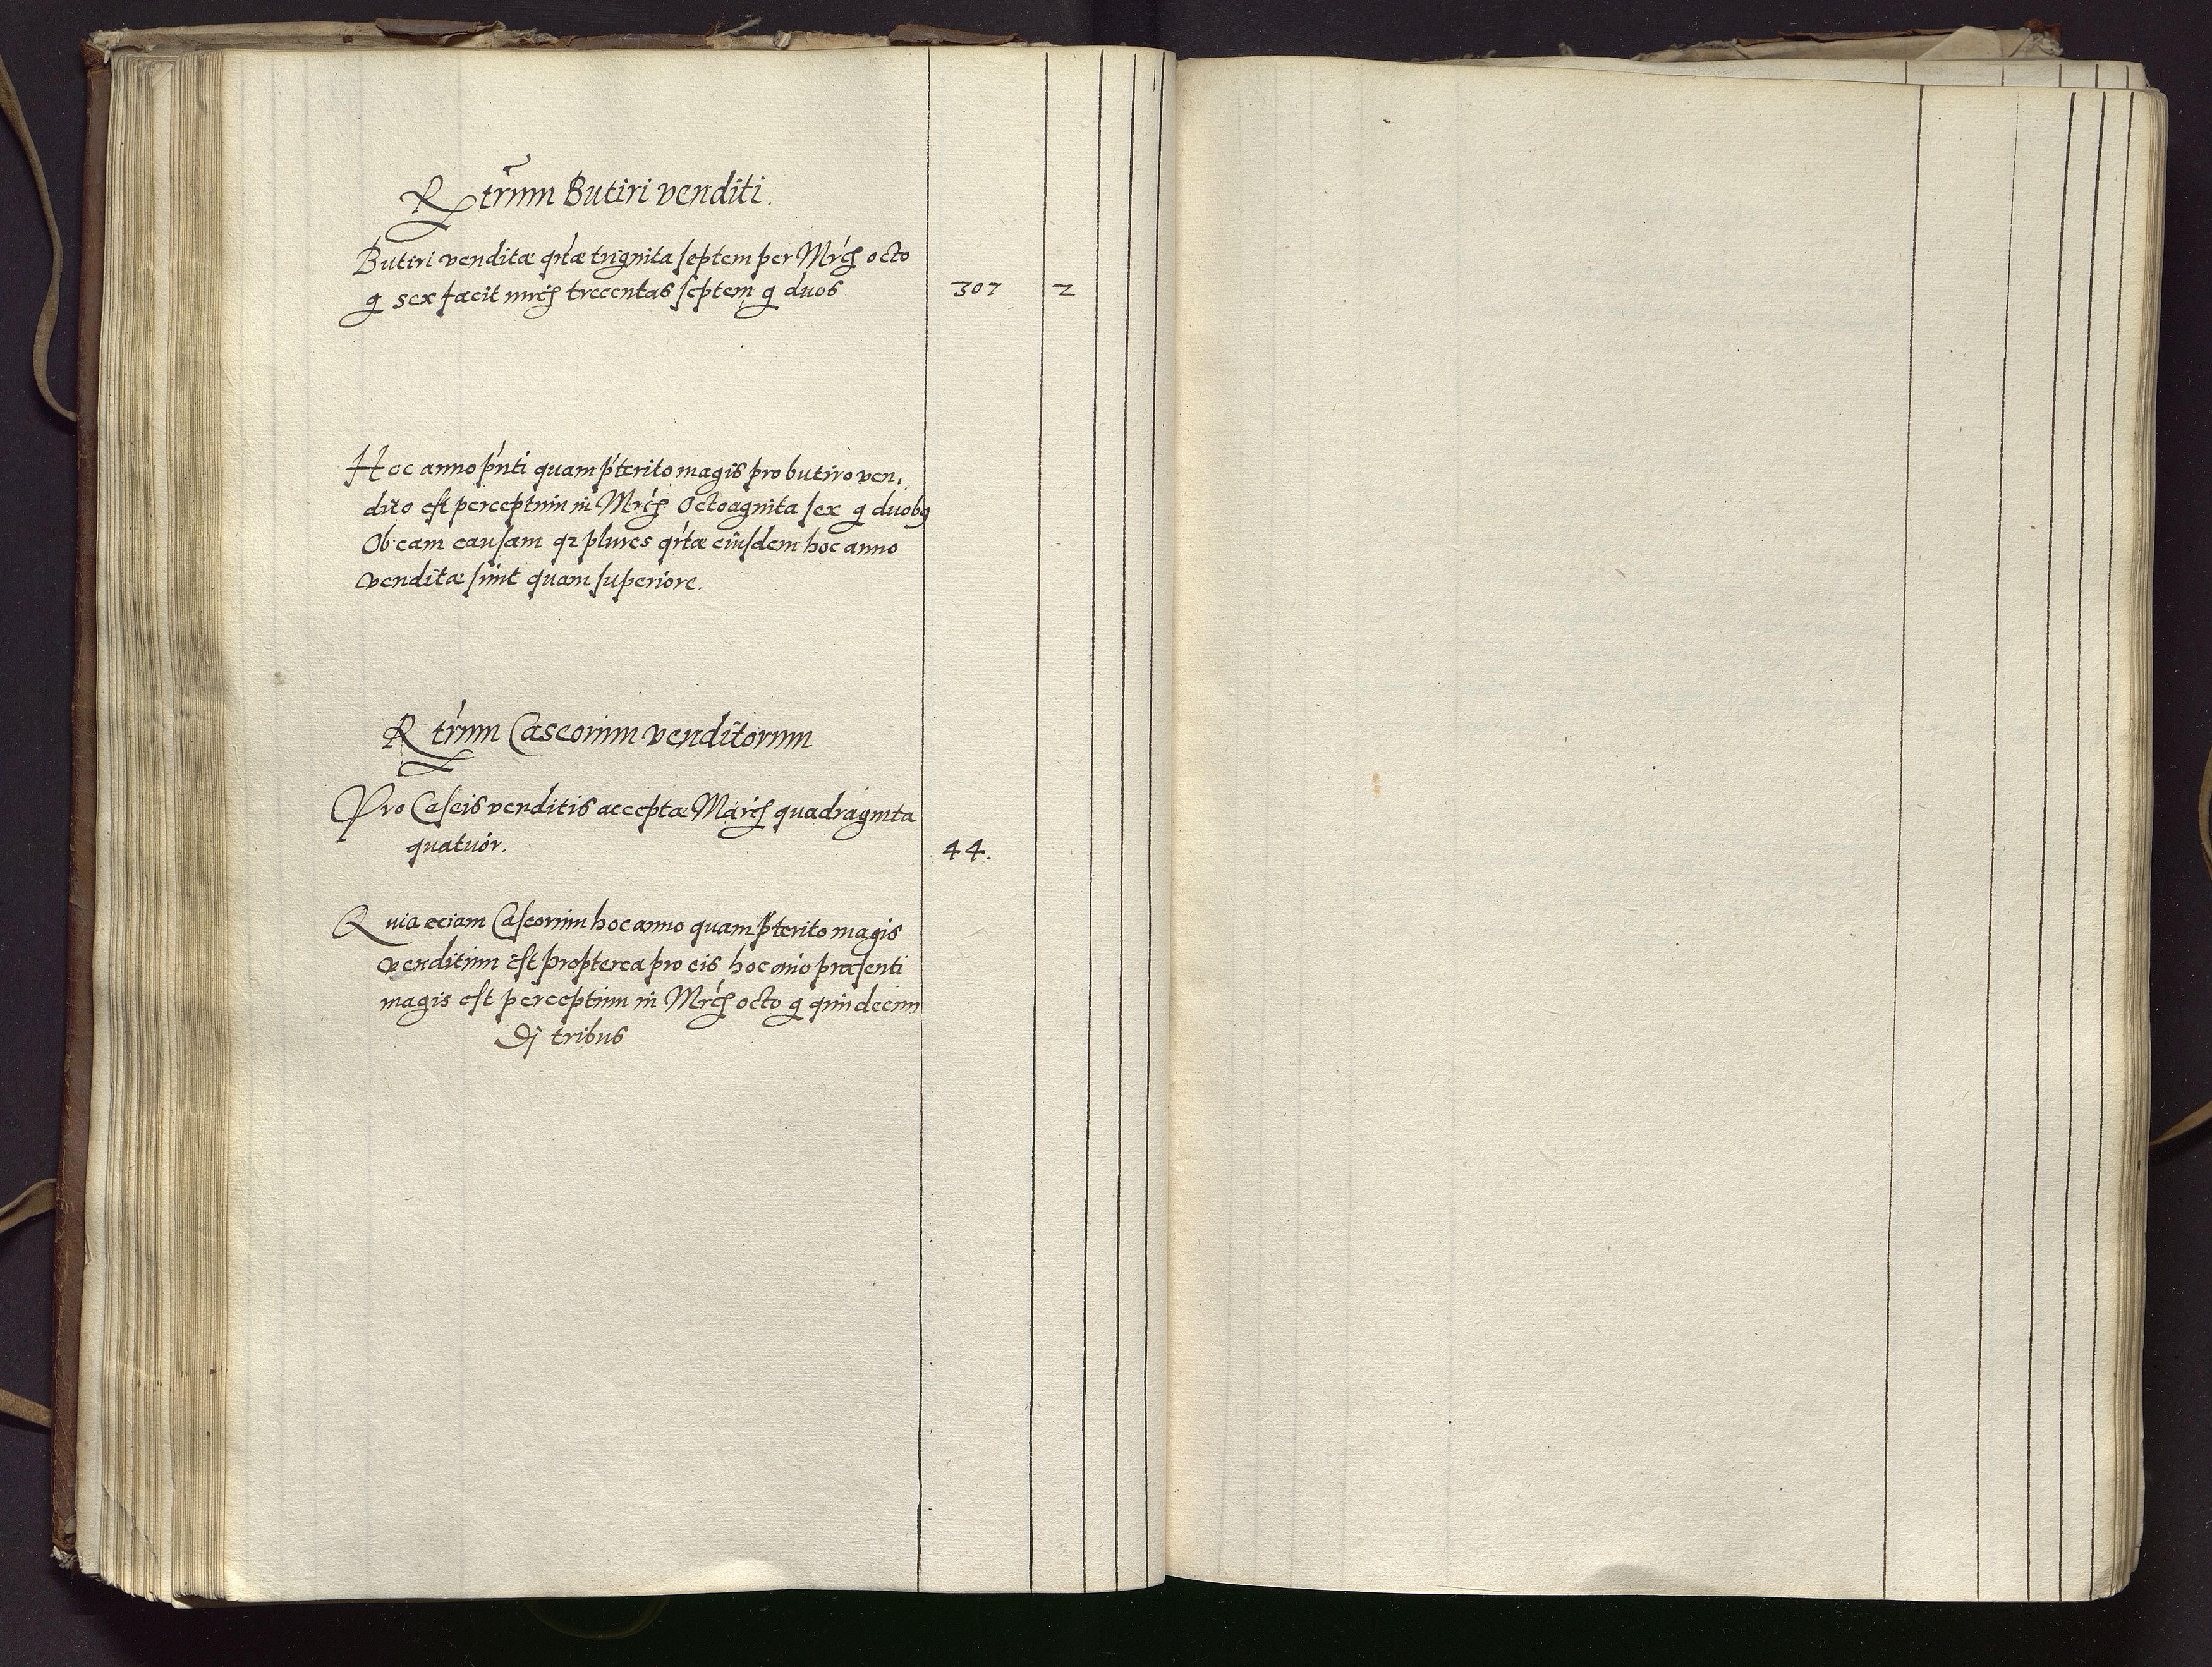 Rtrūm Butiri venditi.
Butiri venditæ qrtæ trignita septem per Mrcs octo
g sex facit mrcs trecentas septem g duos 307 2
Hoc anno pn̄ti quam pterito magis pro butiro ven,
dito est perceptum in Mrcs Octoagnita sex g duobꝰ
Ob eam causam qz plures qrtæ eiusdem hoc anno
venditæ sunt quam superiore.
Rtrūm Caseorum venditorum
Pro Caseis venditis acceptæ Marcs quadraginta
quatuor. 44.
Quia eciam Caseorum hoc anno quam pterito magis
venditum est propterea pro eis hoc año præsenti
magis est perceptum in Mrcs octo g quindecim
dj tribus